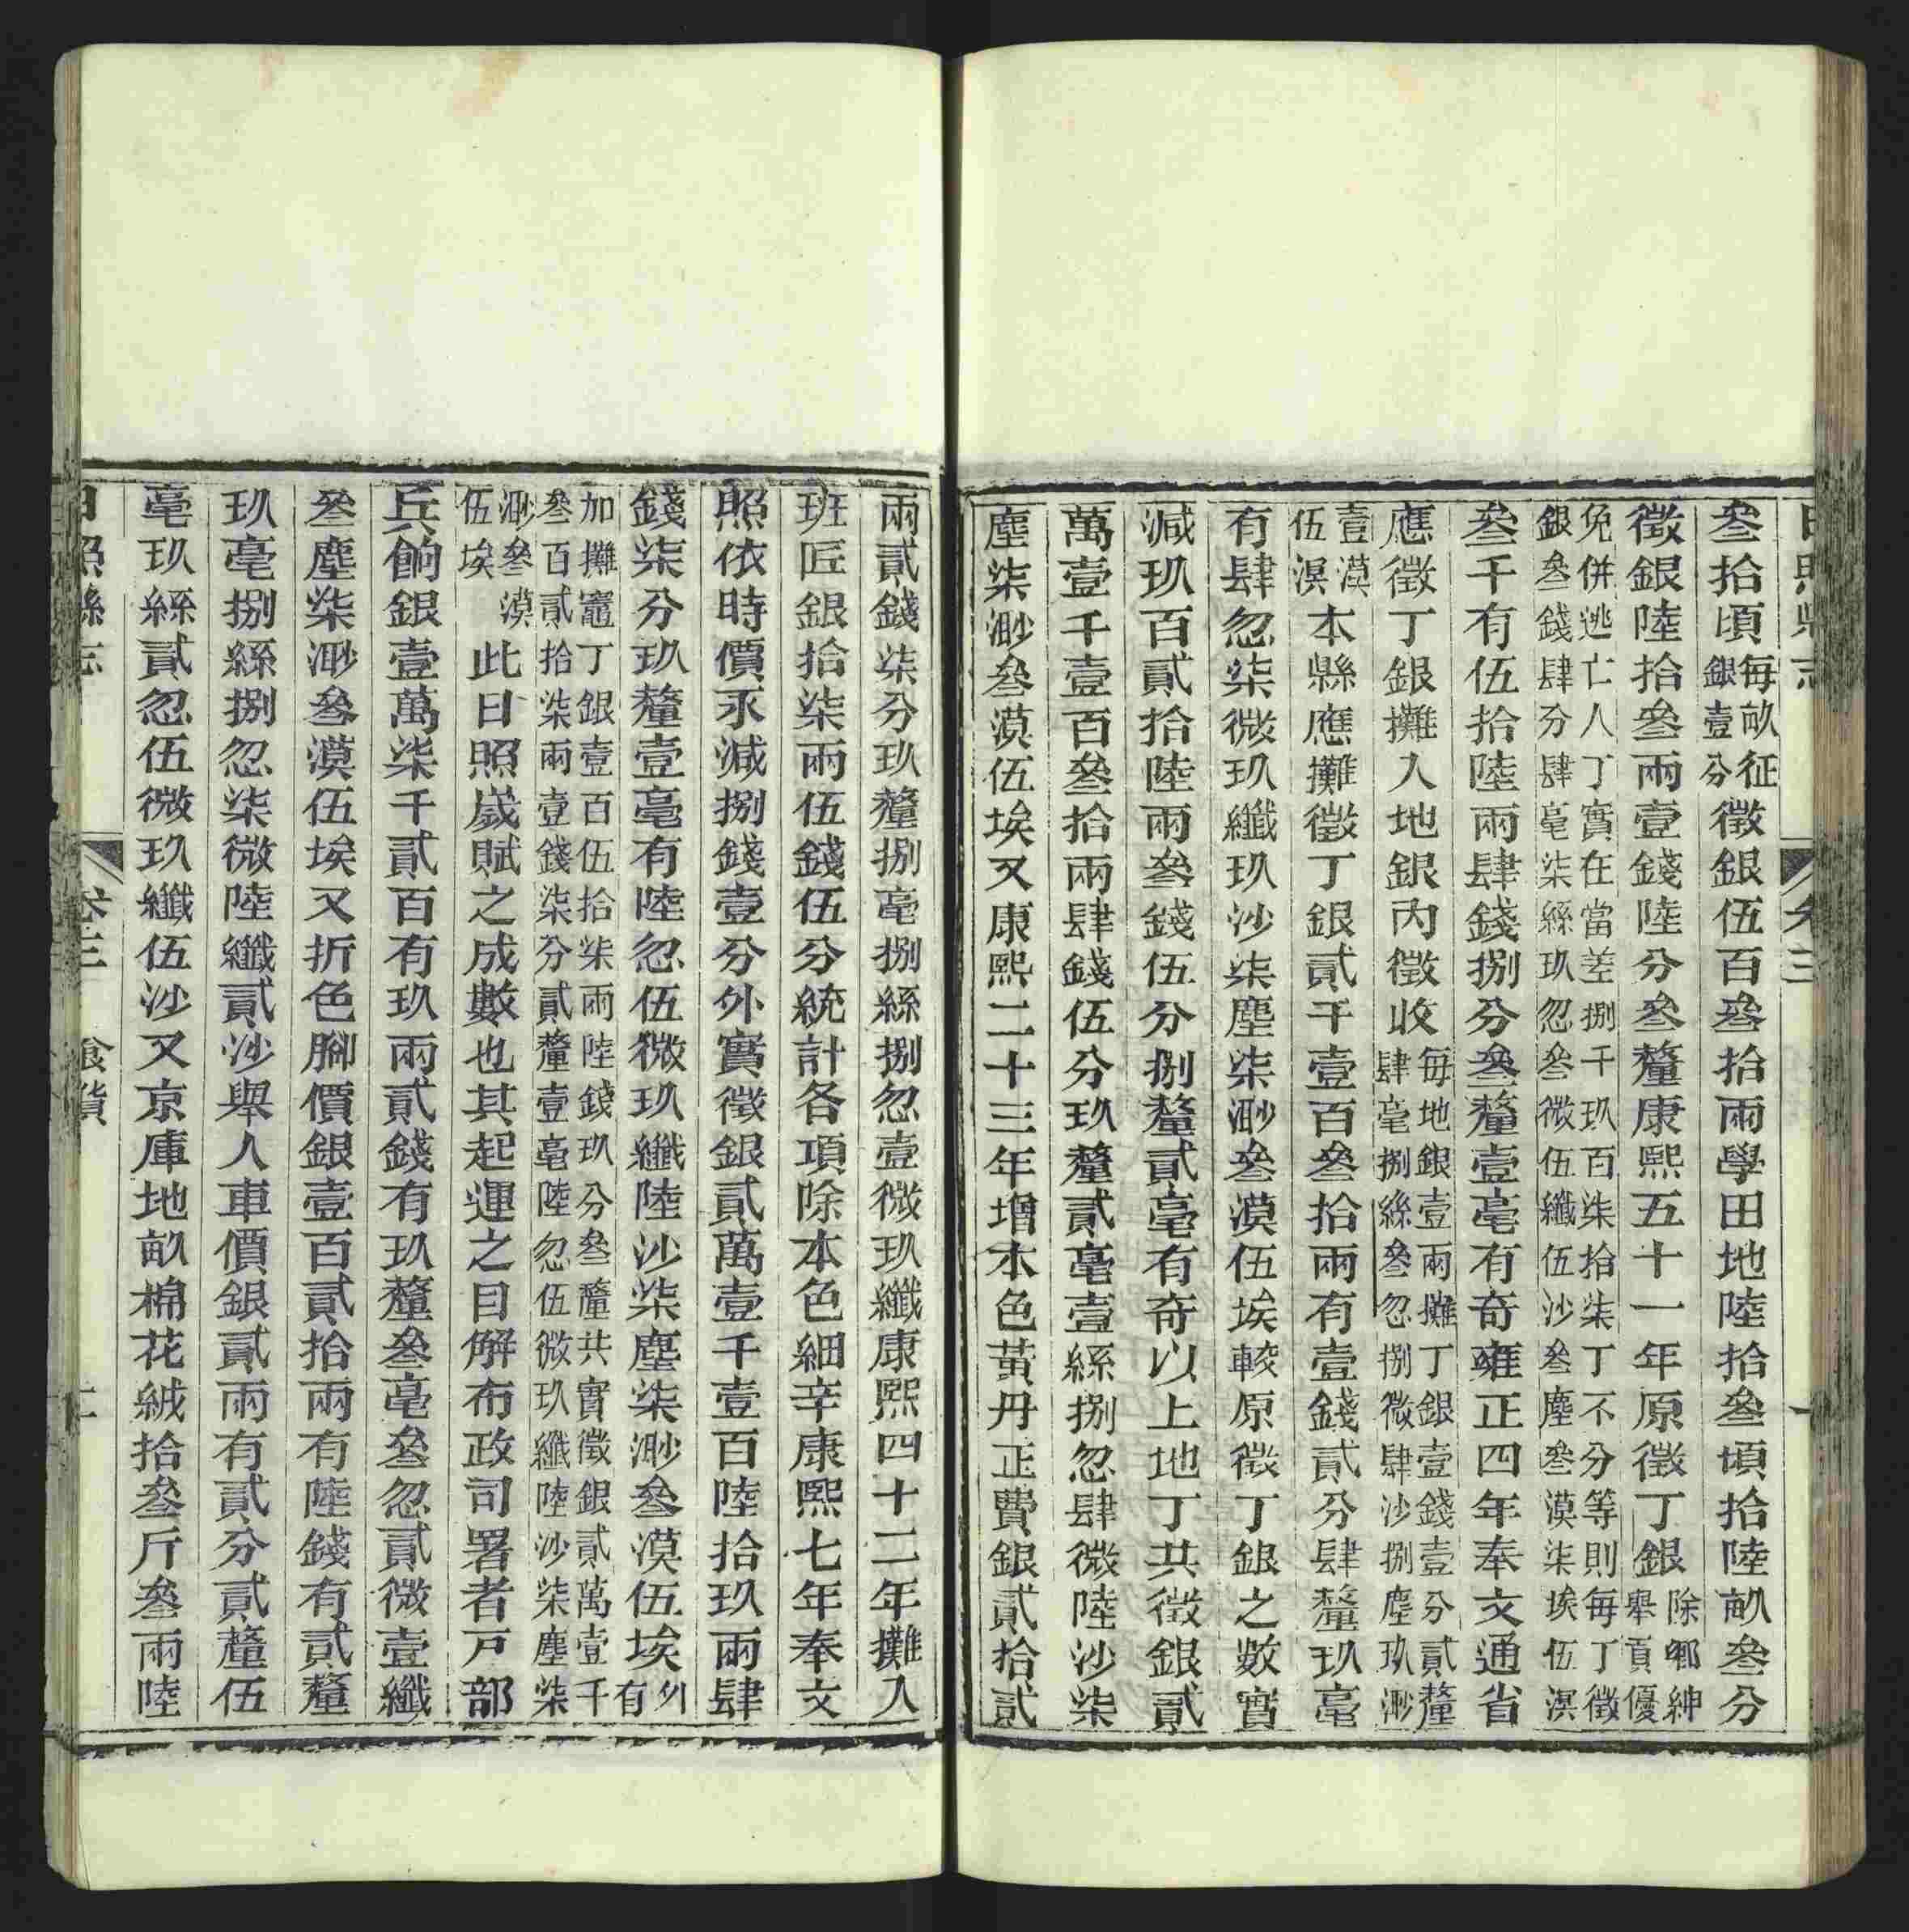 日照縣志 卷三
叁拾頃每畝征
銀壹分徵銀伍百叁拾兩學田地陸拾叁頃拾陸畝叁分
徵銀陸拾叁兩壹錢陸分叁釐康熙五十一年原徵丁銀除鄉紳
舉貢優
免併逃亡人丁實在當差捌千玖百柒拾柒丁不分等則每丁徵
銀叁錢肆分肆毫柒絲玖忽叁微伍纖伍沙叁塵叁漠柒埃伍溟
叁千有伍拾陸兩肆錢捌分叁釐壹毫有奇雍正四年奉文通省
應徵丁銀攤入地銀內徵收每地銀壹兩攤丁銀壹錢壹分貳釐
肆毫捌絲叁忽捌微肆沙捌塵玖渺
壹漠
伍溟本縣應攤徵丁銀貳千壹百叁拾兩有壹錢貳分肆釐玖毫
有肆忽柒微玖纖玖沙柒塵柒渺叁漠伍埃較原徵丁銀之數實
減玖百貳拾陸兩叁錢伍分捌釐貳毫有奇以上地丁共徵銀貳
萬壹千壹百叁拾兩肆錢伍分玖釐貳毫壹絲捌忽肆微陸沙柒
塵柒渺叁漠伍埃又康熙二十三年增本色黃丹正費銀貳拾貳
兩貳錢柒分玖釐捌毫捌絲捌忽壹微玖纖康熙四十二年攤入
班匠銀拾柒兩伍錢伍分統計各項除本色細辛康熙七年奉文
照依時價永減捌錢壹分外實徵銀貳萬壹千壹百陸拾玖兩肆
錢柒分玖釐壹毫有陸忽伍微玖纖陸沙柒塵柒渺叁漠伍埃外
有
加攤竈丁銀壹百伍拾柒兩陸錢玖分叁釐共實徵銀貳萬壹千
叁百貳拾柒兩壹錢柒分貳釐壹毫陸忽伍微玖纖陸沙柒塵柒
渺叁漠
伍埃此日照歲賦之成數也其起運之目解布政司署者戸部
兵餉銀壹萬柒千貳百有玖兩貳錢有玖釐叁毫叁忽貳微壹纖
叁塵柒渺叁漠伍埃又折色腳價銀壹百貳拾兩有陸錢有貳釐
玖毫捌絲捌忽柒微陸纖貳沙舉人車價銀貳兩有貳分貳釐伍
毫玖絲貳忽伍微玖纖伍沙又京庫地畝棉花絨拾叁斤叁兩陸
日照縣志 卷三 食貨